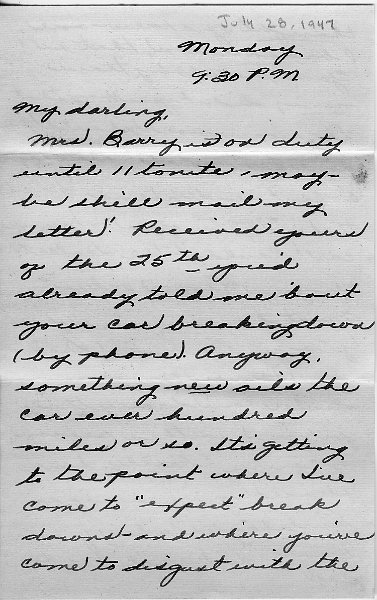 July 28, 1947
Monday
9:30 P.M
My darling,
Mrs. Barry is on duty
until 11 tonite, may-
be she'll mail my
letter! Received yours
of the 25th you'd
already told me 'bout
your car breaking down
(by phone). Anyway,
something new ails the
car ever hundred
miles or so. It's getting
to the point where I've
come to "expect" break
downs - and where you've
come to disgust with the